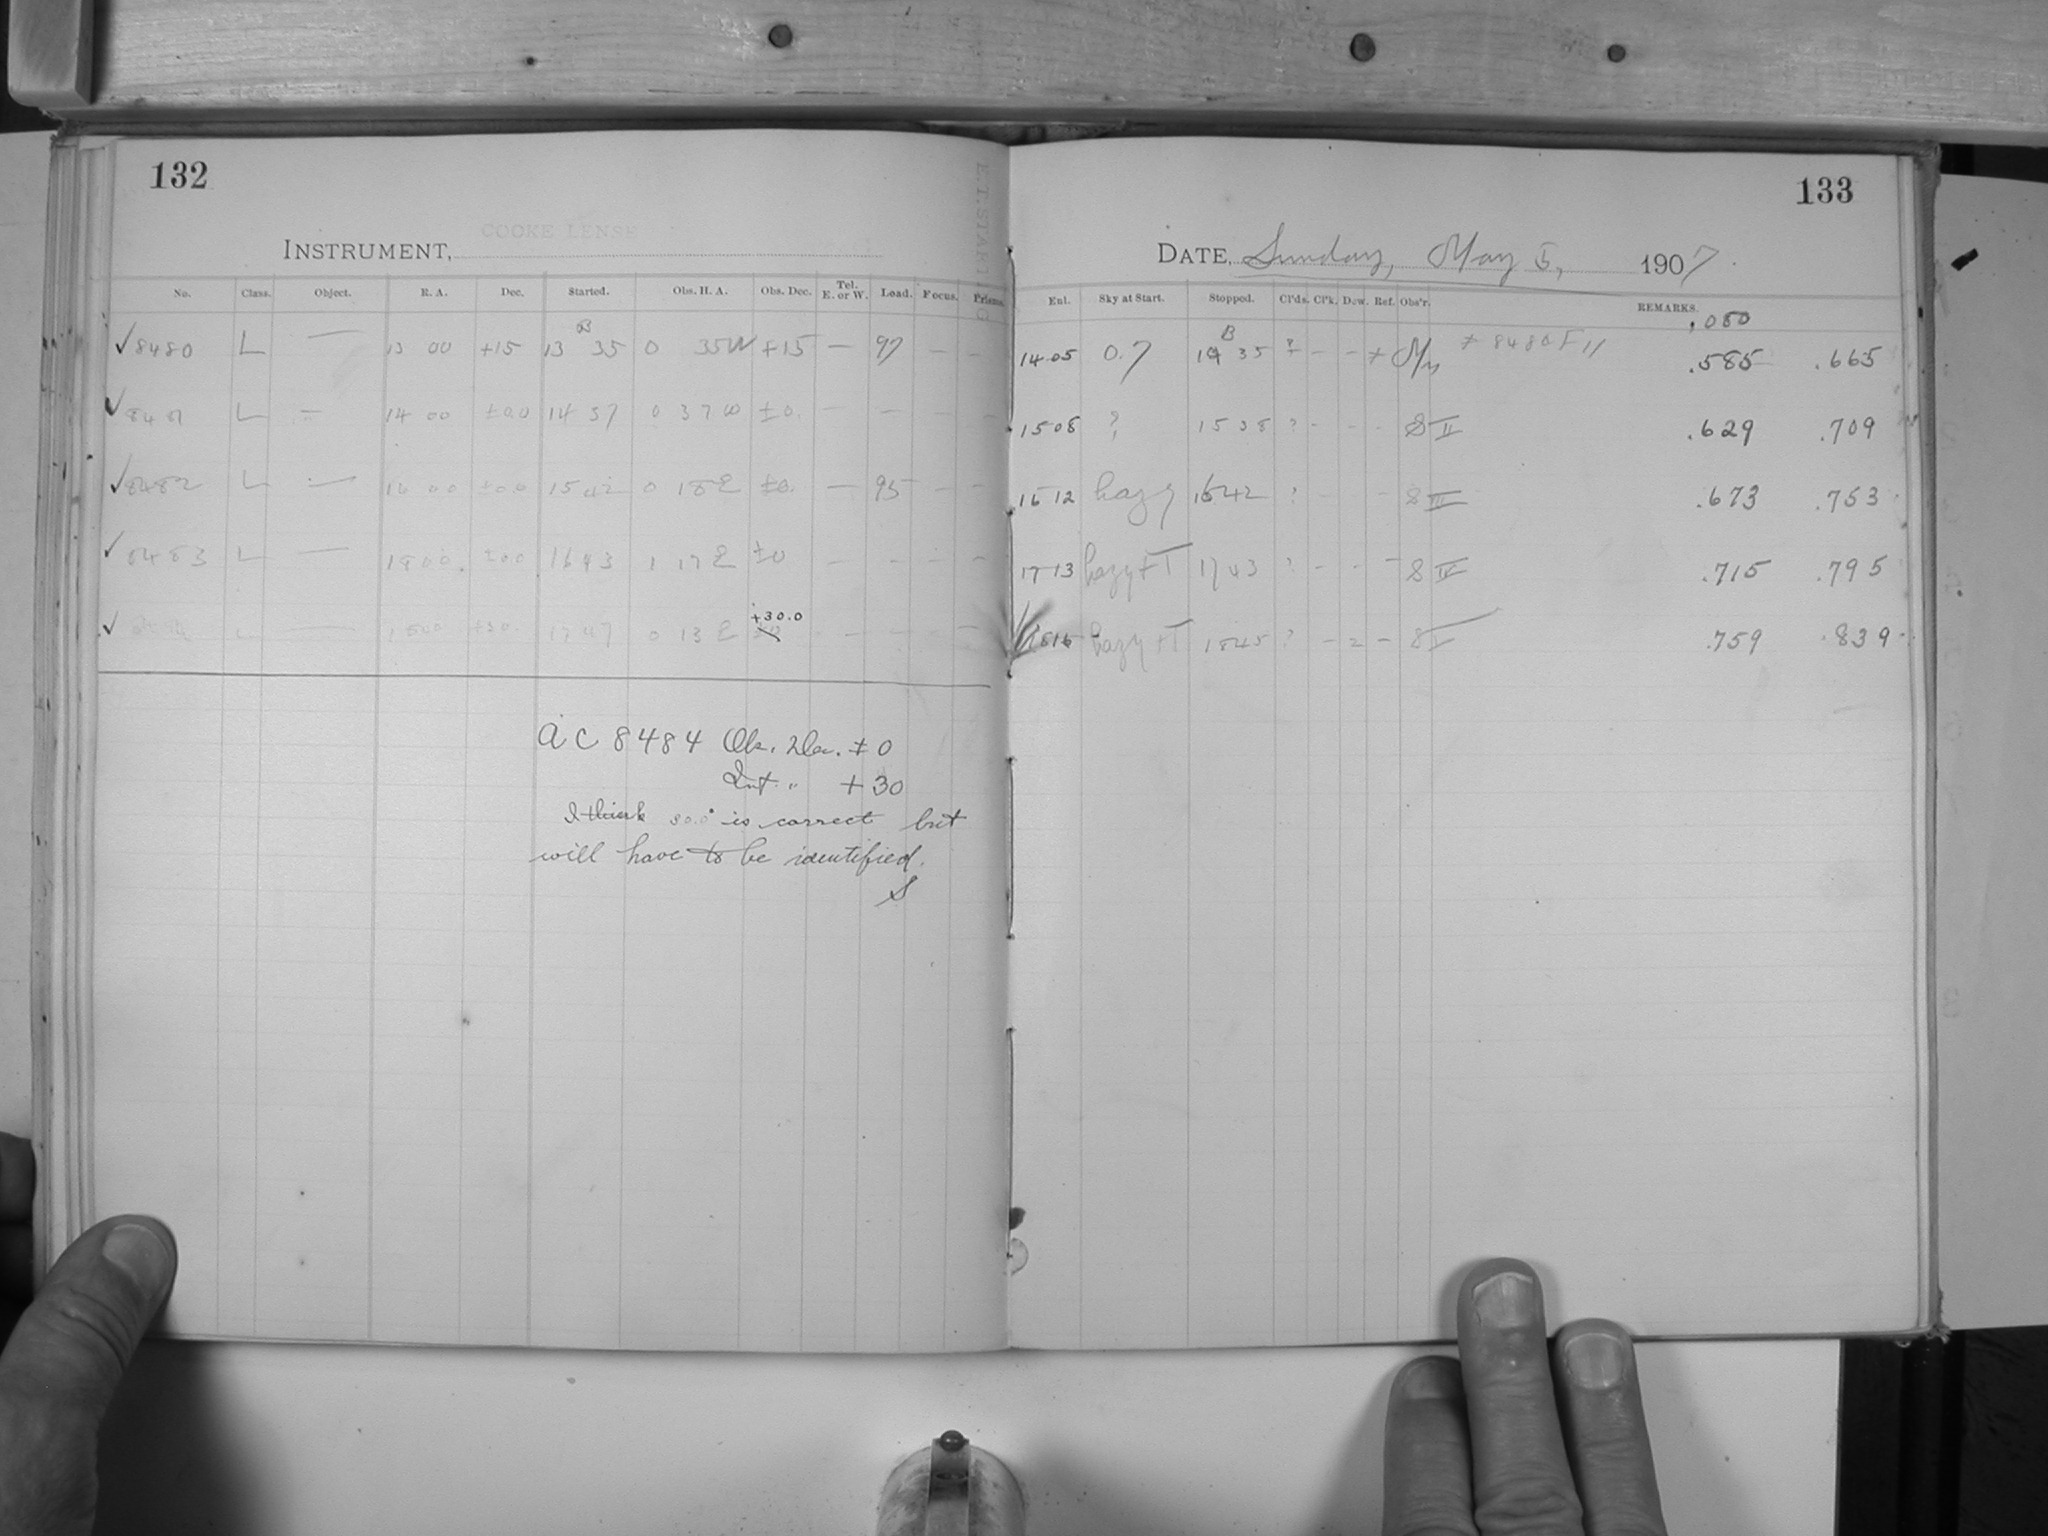 132
COOKE LENSE
INSTRUMENT,
No. Class. Object. R. A. Dec. Started. Obs. H. A. Obs. Dec. Tel. E. or W. Load. Focus. Prisms.
✓8480 L — 13 00 +15 13 35 0 35W +15 — 97 — —
✓8481 L — 14 00 ±00 14 37 0 37W ±0. — — — —
✓8482 L — 16 00 ±00 15 42 0 18E ±0. — 95 — —
✓8483 L — 18 00. ±00 16 43 1 17E ±0 — — — —
✓ 18 00 +30. 17 47 0 13E +30.0 — — — —
AC 8484 Obs. Dec. ±0
Int. " +30
I think 30.0° is correct but
will have to be identified.
S
133
DATE, Sunday, May 5, 1907.
Enl. Sky at Start. Stopped. Cl'ds. Cl'k. Dew. Ref. Obs'r. REMARKS.
.080
14 05 0.7 14 35 ? — — .585 .665
15 08 ? 15 38 ? - - - S II .629 .709
16 12 hazy 1642 ? - - - S III .673 .753
17 13 hazy 17 43 ? - - - S IV .715 .795
1816 hazy 1845 ? - 2 - S V .759 .839